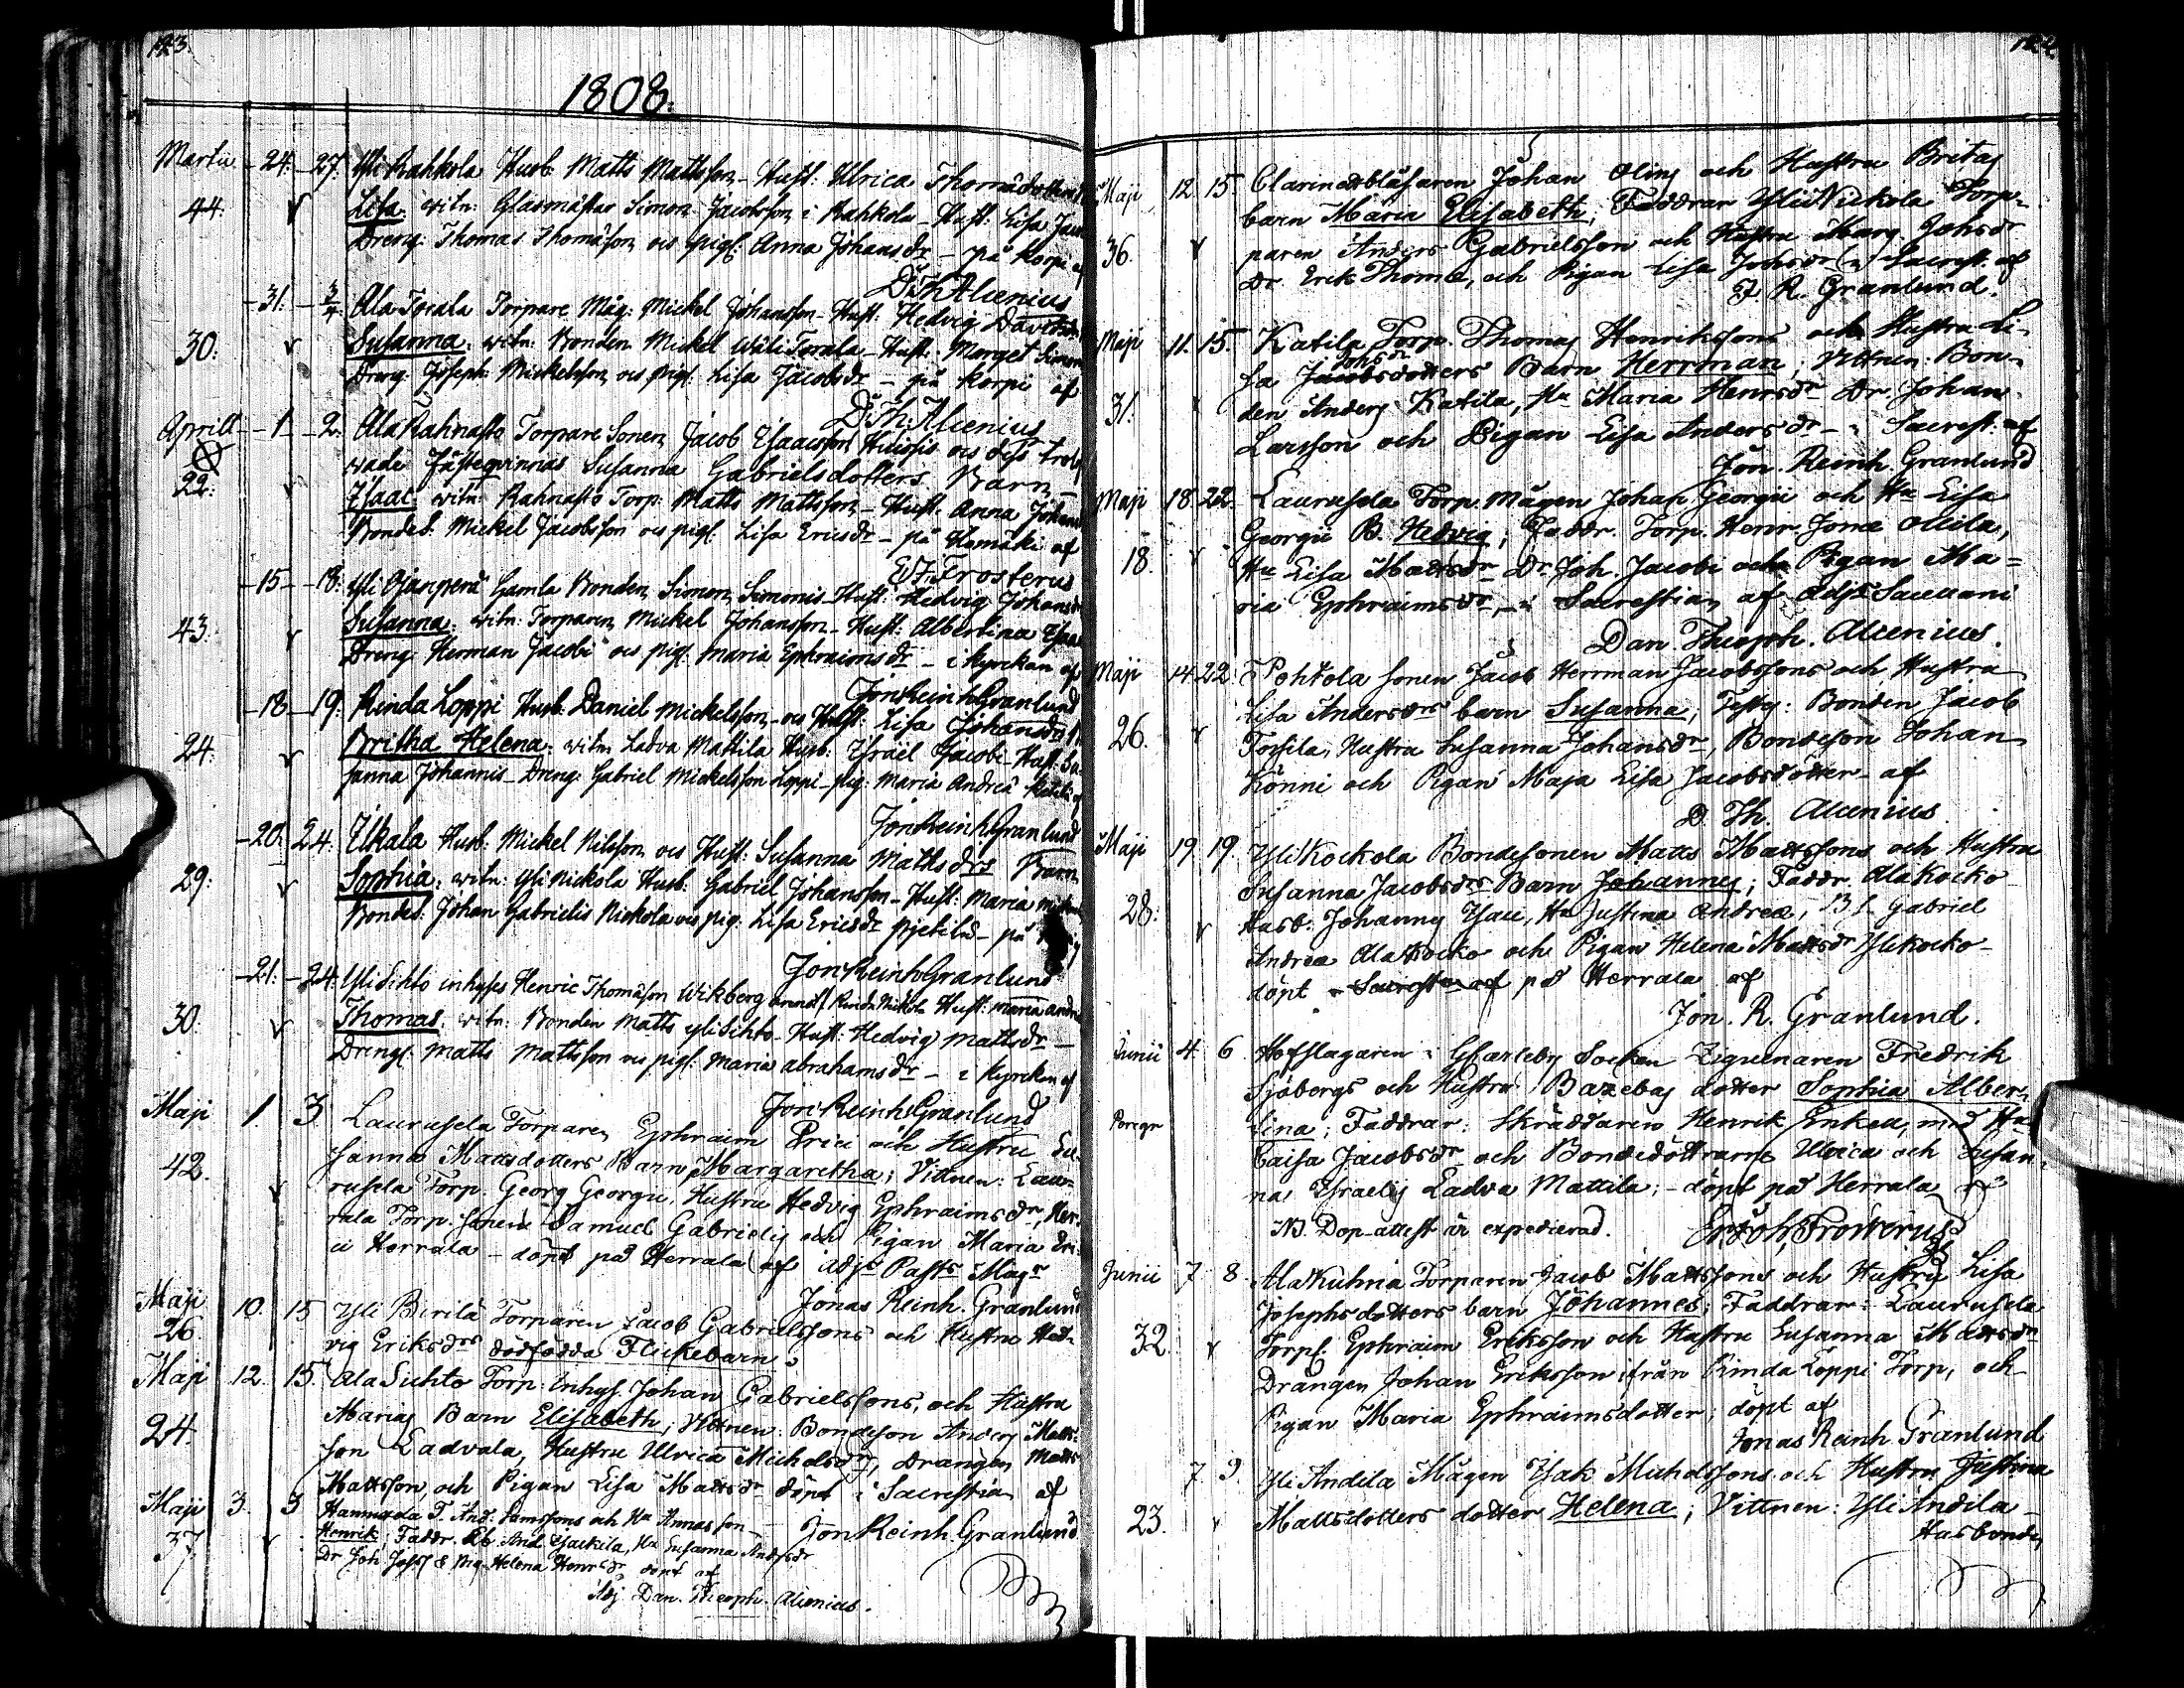 123.
1808.
Martii - 24. - 27. Yli Rahkola Husb. Matts Mattsson - Hust: Ulrica Thomædotters
44. v Lisa. witn: Glasmästar Simon Jacobsson i Rahkola - Hust. Lisa Jac
Dreng: Thomas Thomasson ocs pig: Anna Johansdr - på Korpi af
D: Th: Alcenius
- 31. - 3/4. Ala Torala Torpare Måg: Mickel Johansson - Hust: Hedvig Davids
30: v Susanna. witn: Bonden Mickel Torala - Hust: Marget Simon
Dreng: Joseph Mickelsson ocs pig: Lisa Jacobsdr - på Korpi af
D: Th: Alcenius
Aprill - 1 - 2. Ala Rahnasto Torpare Sonen Jacob Isaacsson ocs dess trolof
wade Fästeqvinnas Susanna Gabrielsdotters Barn
22: v Isaac witn: Rahnasto Torp: Matts Mattsson - Hust. Anna Johans
Bondes. Mickel Jacobsson ocs pig: Lisa Ericsdr - på af
E: J: Frosterus
- 15 - 18: Yli Ojanperä Gamla Bonden Simon Simonis - Hust: Hedvig Johansdr
43. v Susanna. witn: Torparen Mickel Johansson - Hust: Albertina Isaac
Dreng: Herman Jacobi ocs pig: Maria Ephraimsdr - i Kyrckan af
Jon Reinh Granlund
- 18 - 19: Rinda Loppi Husb. Daniel Mickelsson - ocs Hust. Lisa Johansdrs
24. v Britha Helena. witn: Ladva Mattila Husb: Israël Jacobi - Hust: Su-
sanna Johannis - Dreng: Gabriel Mickelsson Loppi - pig: Maria Andreæ af
Jon Reinh Granlund
- 20. 24. Ilkala Husb: Mickel Nilsson ocs Hust: Susanna Mattsdrs Barn
29: v Sophia. witn: Yli Nickola Husb: Gabriel Johansson - Hust: Maria
Bondes: Johan Gabrielis Nickola ocs pig: Lisa Ericsdr - på
Jon Reinh Granlund
- 21. - 24. Yli Sihto inhyses Henric Thomæson Wikberg Hust: Maria
30. v Thomas. witn: Bonden Matts Yli Sihto - Hust: Hedvig Mattsdr -
Dreng: Matts Mattsson ocs pig: Maria Abrahamsdr - i Kyrckan af
Jon Reinh Granlund
Maji 1. 3 Laurusela Torparen Ephraim Erici och Hustru Su-
42. v sanna Mattsdotters Barn Margaretha; Vittnen: Lau-
rusela Torp. Georg Georgii, Hustru Hedvig Ephraimsdr, Her-
rala Torp. sonen Samuel Gabrielis och Pigan Maria Eri-
ci Herrala - döpt på Herrala af Adjs Pasts Magr
Jonas Reinh. Granlund
Maji 10. 15 Yli Birilä Torparen Jacob Gabrielssons och Hustru Hed-
26. vig Eriksdrs dödfödda Flickebarn.
Maji 12. 15. Ala Sihto Torp: inhys. Johan Gabrielssons, och Hustru
24. Marias Barn Elisabeth; Vittnen: Bondeson Anders Matts-
son Ladvala, Hustru Ulrica Michelsdr, Drängen Matts
Mattsson, och Pigan Lisa Mattsdr döpt i Sacrestian af
Jon Reinh. Granlund
Maji 3. 3 Hannuxela T. And. Samssons och Hu Annas son
37. v Henrik; Faddr. And. Isackila, Hu Susanna Andsdr
Dr Joh. & Pig. Helena Henrsdr, döpt af
Adj Dan. Theoph. Alcenius.
Maji 12. 15. Clarinettblåsaren Johan Oling och Hustru Britas
36. v barn Maria Elisabeth; Faddrar Yli Nickola Torp-
paren Anders Gabrielsson och Hustru Marg. Johsdr
Dr Erik Thomæ, och Pigan Lisa Johsdr Sacrest. af
J. R. Granlund.
Maji 11. 15. Katila Torp. Thomas Henrikssons och Hustru Li-
Johsdr
sa Jacobsdotters Barn Herrman; Vittnen: Bon-
31. v den Anders Katila, Hu Maria Henrsdr Dr. Johan
Larsson och Pigan Lisa Andersdr - i Sacrest. af
Jon. Reinh. Granlund
Maji 18. 22. Laurusela Torp. mågen Johan Georgii och Hu Lisa
18. v Georgii B. Hedvig; Faddr. Torp. Henr. Jonæ Ollila,
Hu Lisa Mattsdr Dr. Joh. Jacobi och Pigan Ma=
ria Ephraimsdr, - i Sacrestian af Adjs Sacellani
Dan. Theoph. Alcenius.
Maji 14 22. Pohtola sonen Jacob Herrman Jacobssons och Hustru
26. v Lisa Andersdrs barn Susanna; Testes: Bonden Jacob
Tossila, Hustru Susanna Johansdr, Bondeson Johan
Könni och Pigan Maja Lisa Jacobsdotter - af
D. Th. Alcenius.
Maji 19 19. Yli Kockola Bondesonen Matts Mattssons och Hustru
28. v Susanna Jacobsdrs Barn Johannes; Faddr. Ala Kocko
Husb. Johannes Isaci, Hu Justina Andreæ, B.s. Gabriel
Andreæ Ala Kocko och Pigan Helena Mattsdr Yli Kocko -
döpt i Sacrestian af på Herrala af
Jon. R. Granlund.
Junii 4. 6. Hofslagaren i Socken Ziguenaren Fredrik
Sjöbergs och Hustru dotter Sophia Alber-
Peregr tina; Faddrar: Skräddaren Henrik Enkell, med Hu
Caisa Jacobsdr och Bondedöttrarne Ulrica och Susan-
na Israelis Ladva Mattila; - döpt på Herrala af
NB. Dop-attest är expedierad. Er. Joh. Frosterus
Junii 7 8. Ala Kuhna Torparen Jacob Mattssons och Hustru Lisa
32 v Josephsdotters barn Johannes; Faddrar: Laurusela
Torp: Ephraim Eriksson och Hustru Susanna Mattsdr
Drängen Johan Eriksson ifrån Rinda Loppi Torp, och
Pigan Maria Ephraimsdotter; döpt af
Jonas Reinh. Granlund
7. 9. Yli Andila Mågen Isak Michelssons och Hustru Justina
23. v Mattsdotters dotter Helena; Vittnen: Yli Andila
Husbonden